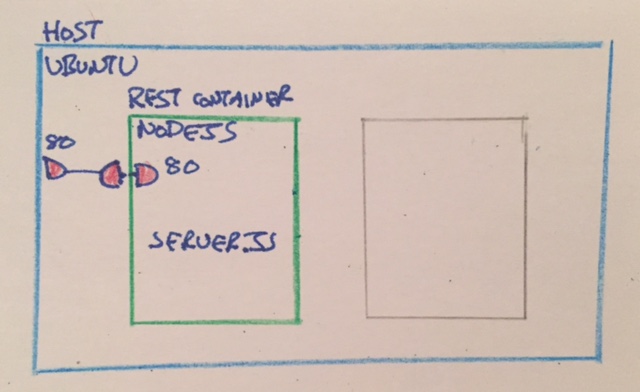 HOST
UBUNTU
REST CONTAINER
NODEJS
80
80
SERVER.JS